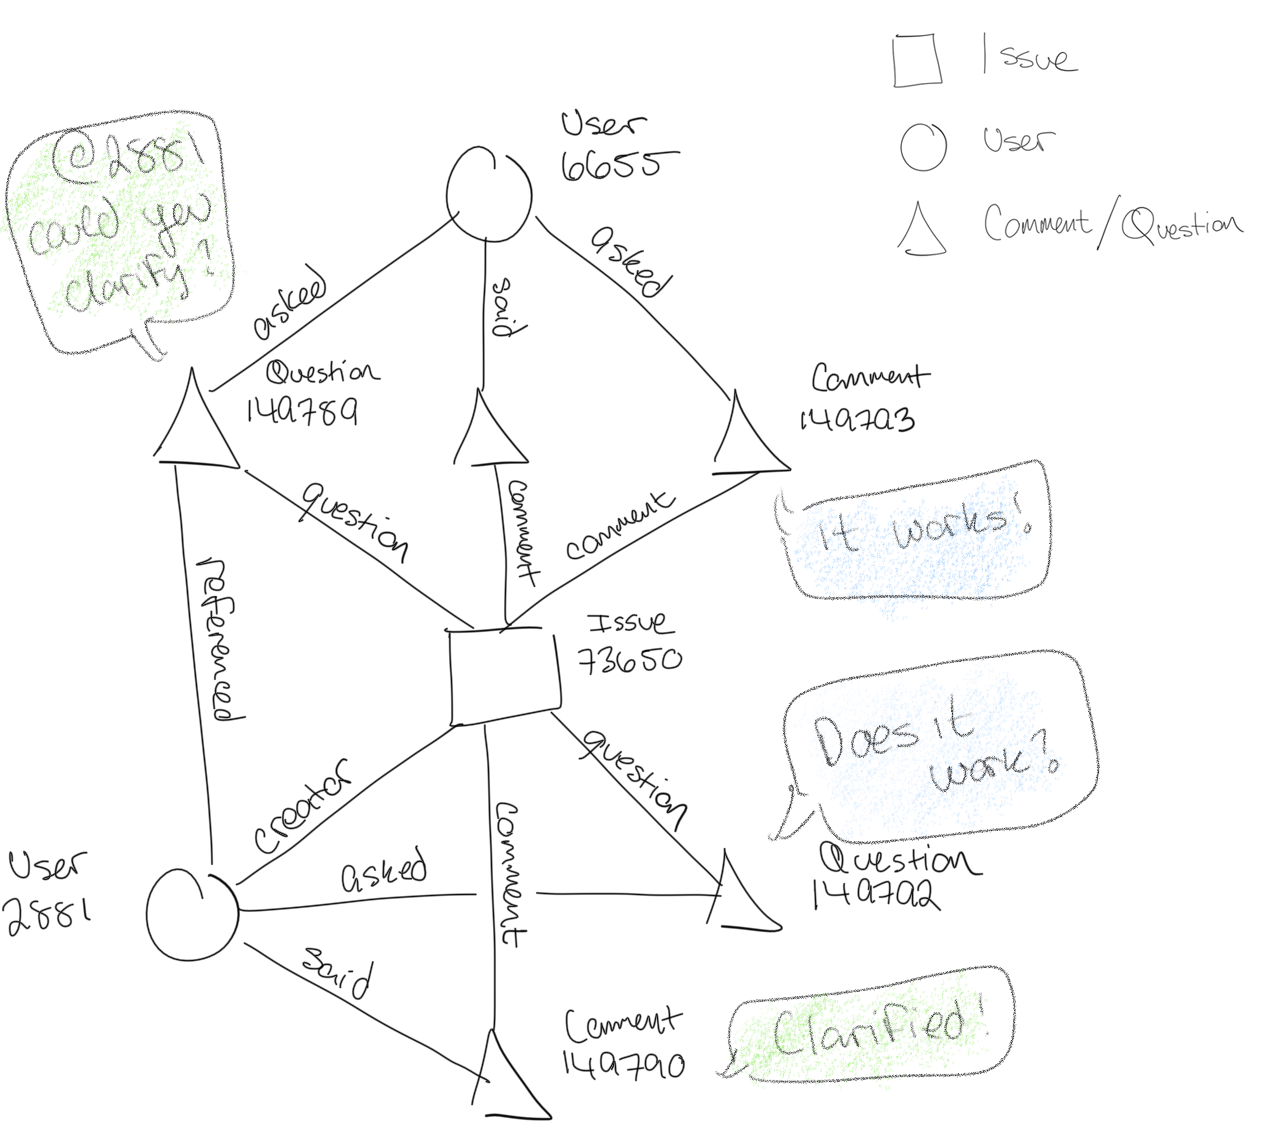 Issue
User
Comment/Question
User
6655
@2881
could you
clarify?
asked
said
asked
Question
149789
Comment
149793
question
comment
comment
it works!
referenced
Issue
73650
Does it
work?
question
creator
comment
User
2881
asked
Question
149792
said
Comment
149790
Clarified!